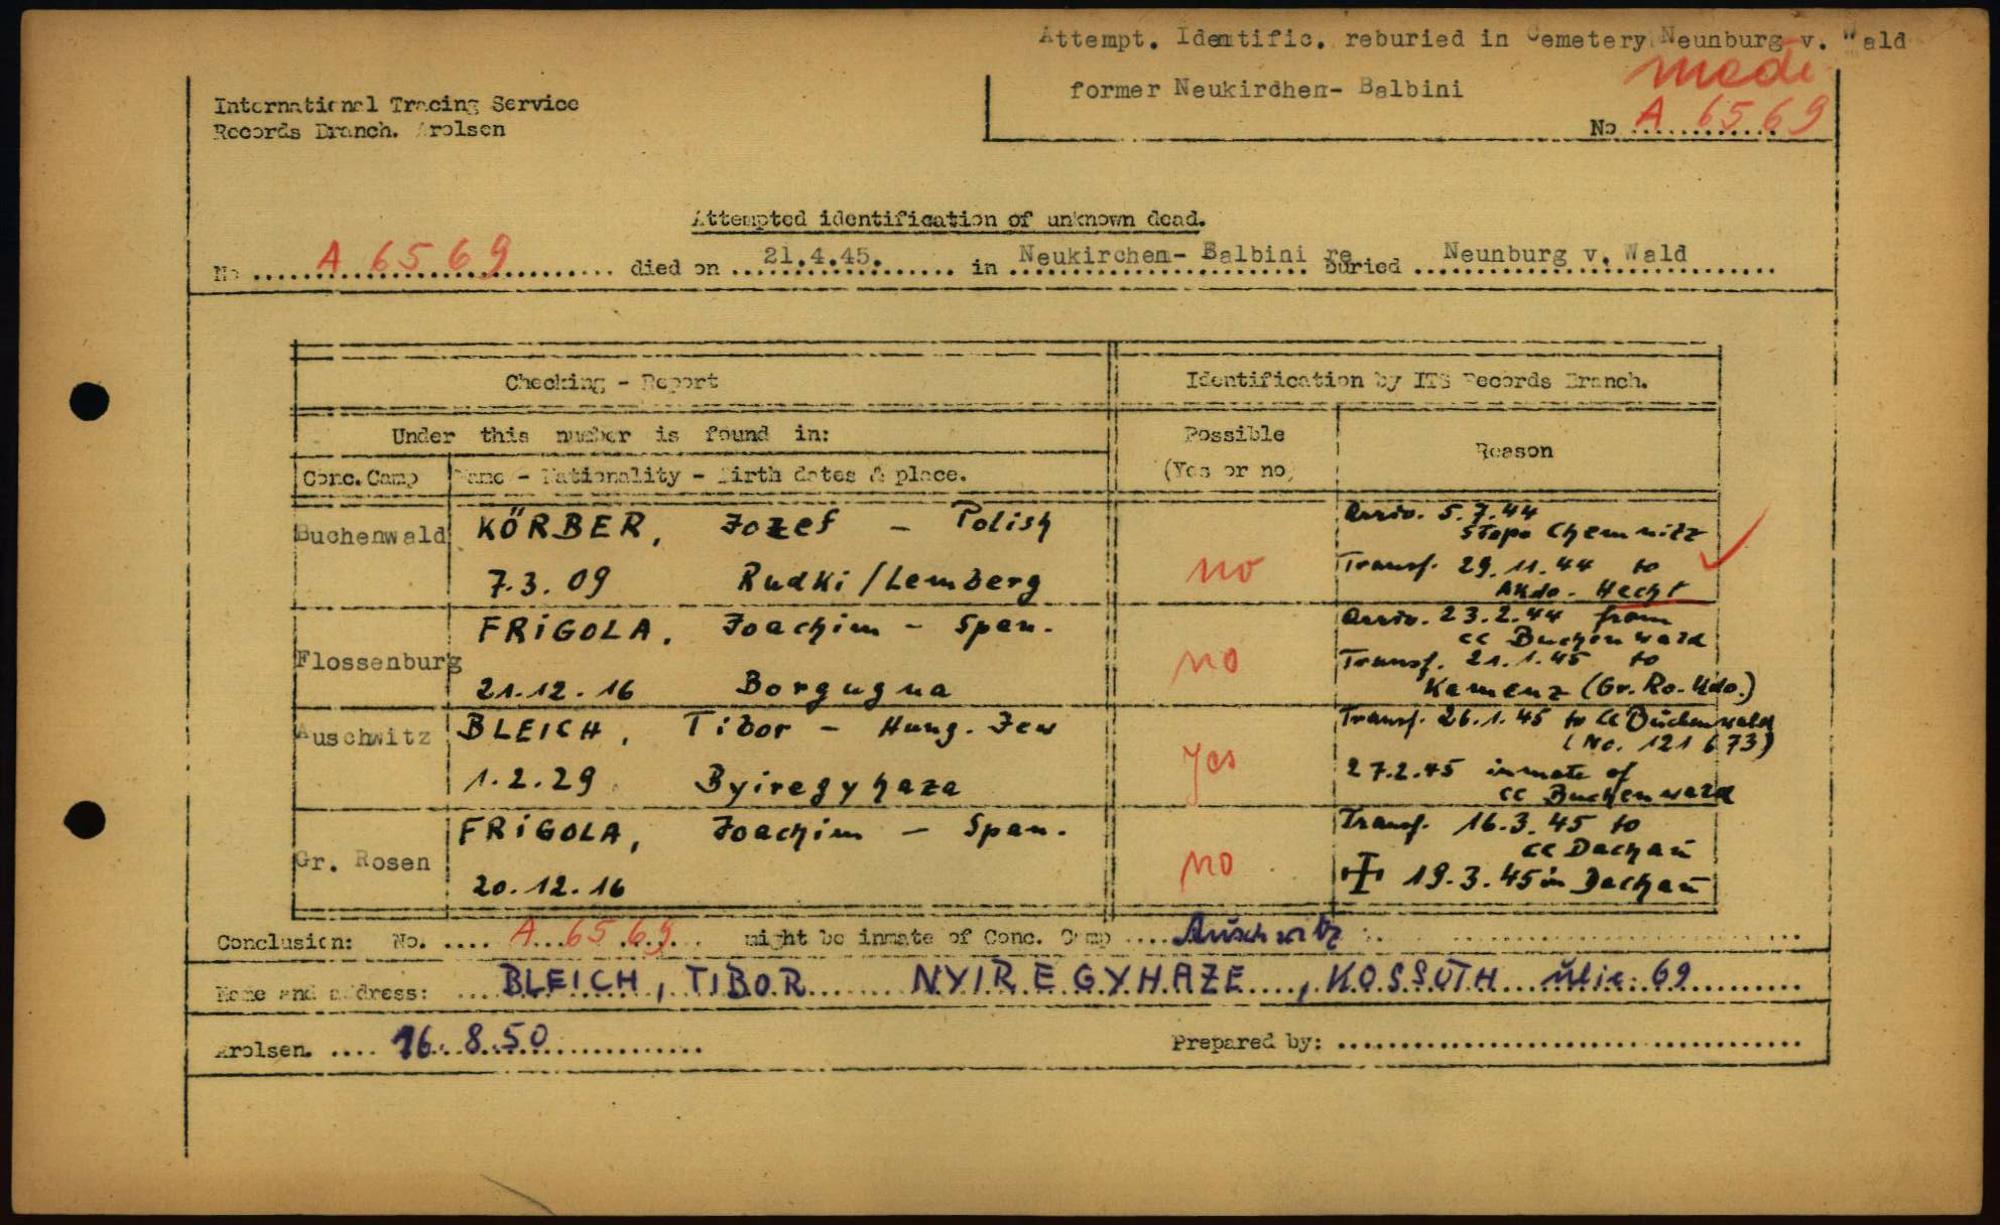 Attempt. Identific. reburied in Cemetery Neunburg v. Wald
former Neukirchen- Balbini
made
No A 6569
International Tracing Service
Records Branch. Arolsen
Attempted identification of unknown dead.
No A 6569 died on 21.4.45. in Neukirchen- Balbini re buried Neunburg v. Wald
Checking - Report
Identification by ITS Records Branch.
Under this number is found in:
Possible
(Yes or no)
Reason
Conc. Camp
Name - Nationality - Birth dates & place.
Buchenwald
KÖRBER, Jozef - Polish
7.3.09 Rudki/Lemberg
no
Arriv. 5.7.44
Stapo Chemnitz
Transf. 29.11.44 to
AKdo. Hecht
Flossenburg
FRiGOLA, Joachim - Span.
21.12.16 Borgugna
no
Arriv. 23.2.44 from
cc Buchenwald
Transf. 21.1.45 to
Kamenz (Gr. Ro. Kdo.)
Auschwitz
BLEICH, Tibor - Hung. Jew
1.2.29 Byiregyhaza
yes
Transf. 26.1.45 to cc Buchenwald
(No. 121673)
27.2.45 inmate of
cc Buchenwald
Gr. Rosen
FRiGOLA, Joachim - Span.
20.12.16
no
Transf. 16.3.45 to
cc Dachau
19.3.45 in Dachau
Conclusion: No. A 6569 might be inmate of Conc. Camp Auschwitz
Name and address: BLEICH, TIBOR NYIREGYHAZE, KOSSUTH ulic. 69
Arolsen. 16.8.50
Prepared by: